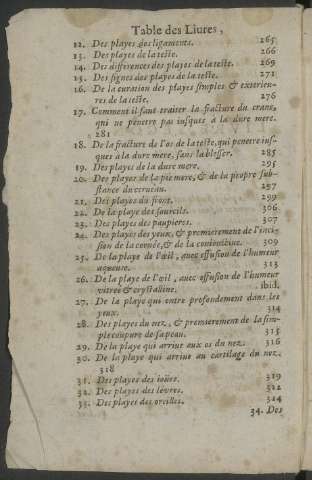 Table des Liures,
12. Des playes des ligaments. 265
13. Des playes de la teste. 266
14. Des differences des playes de la teste. 269
15. Des signes des playes de la teste. 271
16. De la curation des playes simples & exterieu-
res de la teste. 276
17. Comment il faut traiter la fracture du crane,
qui ne penetre pas iusques à la dure mere.
281
18. De la fracture de l'os de la teste, qui penetre ius-
ques à la dure mere, sans la blesser. 285
19. Des playes de la dure mere. 295
20. Des playes de la pie mere, & de la propre sub-
stance du cerueau. 297
21. Des playes du front. 299
22. De la playe des sourcils. 306
23. Des playes des paupieres. 307
24. Des playes des yeux, & premierement de l'inci-
sion de la cornée, & de la conionctiue. 309
25. De la playe de l'œil, auec effusion de l'humeur
aqueuse. 313
26. De la playe de l'œil, auec effusion de l'humeur
vitreé & crystalline. ibid.
27. De la playe qui entre profondement dans les
yeux. 314
28. Des playes du nez, & premierement de la sim-
ple coupure de sa peau. 315
29. De la playe qui arriue aux os du nez. 316
30. De la playe qui arriue au cartilage du nez.
318
31. Des playes des ioües. 319
32. Des playes des lévres. 322
33. Des playes des oreilles. 324
34. Des